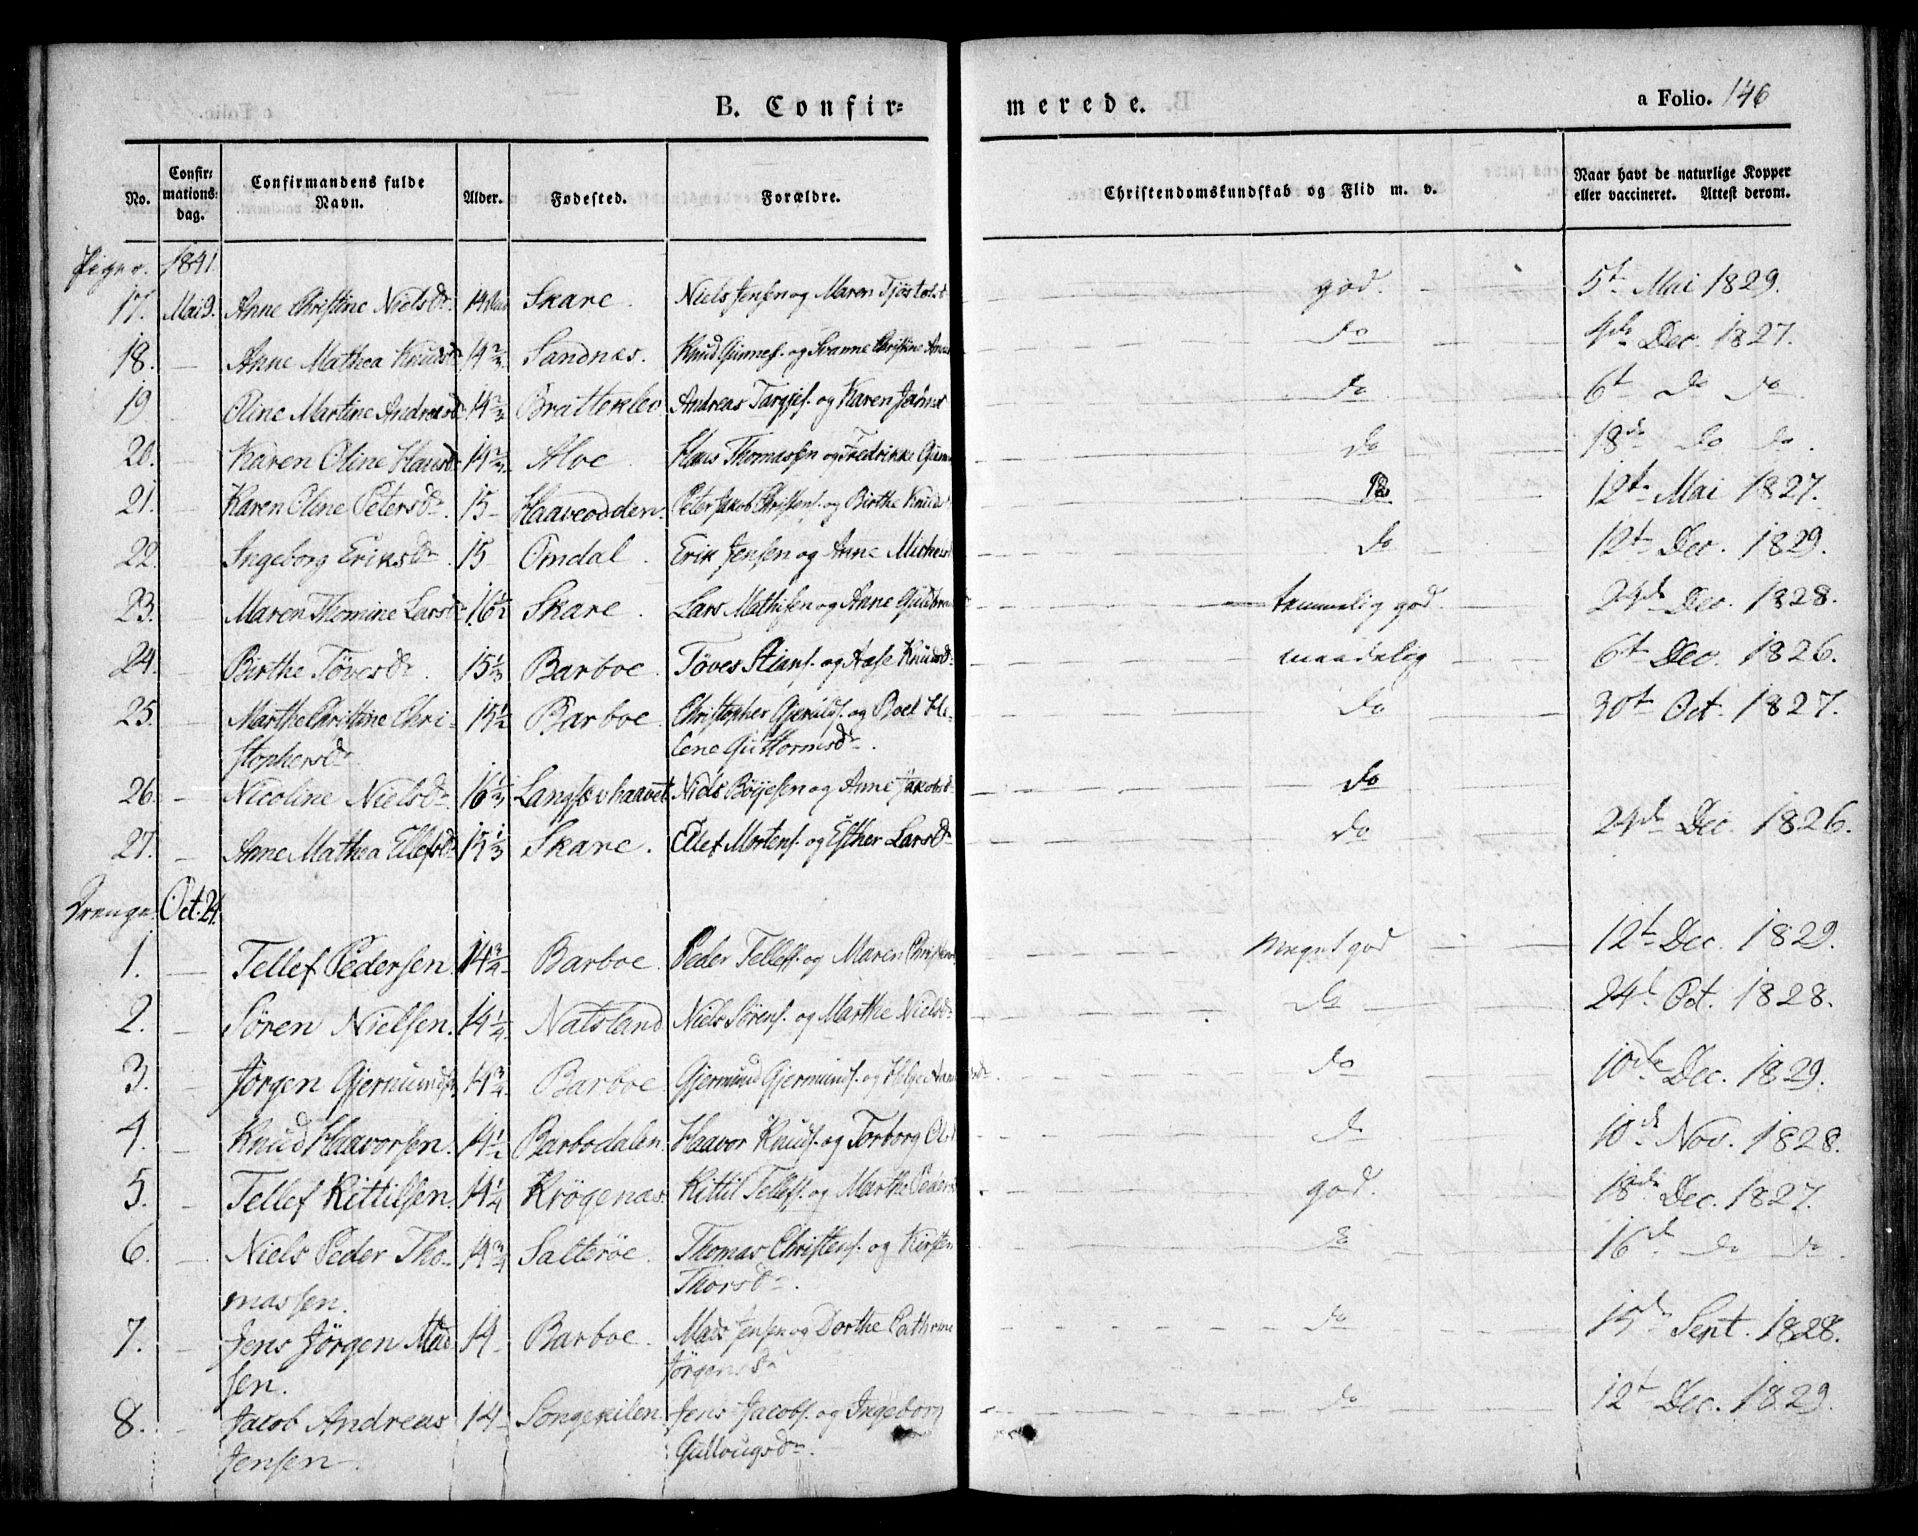 B. Confir= merede. a Folio. 146
No. Confirmationsdag. Confirmandens fulde Navn. Alder. Fødested. Forældre. Christendomskundskab og Flid m. v. Naar havt de naturlige Kopper eller vaccineret. Attest derom.
Piger. 1841.
17. Mai 9. Anne Christine Nielsdr. 14 Skare. Niels Jensen og Maren god. 5t Mai 1829.
18. — Anne Mathea Knudsdr 14 2/3 Sandnæs. Knud Gunnes. og Svanne Christine do 4de Dec. 1827.
19 — Oline Martine Andreasd 14 2/3 Brattekleo Andreas Targjes. og Karen do 6t do do
20. — Karen Oline Hansd 14 2/3 Alve. Hans Thomassen og Fredrikke do 18de do do
21. — Karen Oline Petersdr. 15 Haaveodden. Peter Jakob Christens. og Birthe Knuds do 12te Mai 1827.
22. — Ingeborg Eriksdr 15 Omdal. Erik Jensen og Anne do 12t Dec. 1829.
23. — Maren Thomine Larsdr 16 1/2 Skare. Lars Mathisen og Anne temmelig god. 24de Dec. 1828.
24. — Birthe Tövesdr. 15 1/3 Barboe. Töves Stians. og Aase Knudsd. maadelig 6t Dec. 1826.
25. — Marthe Christine Chri- 15 1/2 Barboe. Christopher Gjeruls. og Boel He- do 30te Oct. 1827.
stophersdr lene Guttormsdr.
26. — Nicoline Nielsdr. 16 1/3 Langsævhaavet Niels Böyesen og Anne Jakobsd. do
27. — Anne Mathea Ellefsdr. 15 1/3 Skare. Ellef Mortens. og Esther Larsdr do 24de Dec. 1826.
Drenge. Oct. 24.
1. — Tellef Pedersen 14 3/4 Barboe. Peder Tellefs. og Maren meget god 12t Dec. 1829.
2. — Sören Nielsen. 14 1/4 Natsland Niels Sörens. og Marthe Nielsdr do 24de Oct. 1828.
3. — Jörgen Gjermunds. 14 3/4 Barboe Gjermund Gjermunds. og Helge do 10de Dec. 1829.
4. — Knud Haavorsen. 14 1/2 Barbodalen. Haavor Knuds. og Torborg Ols do 10de Nov. 1828.
5. — Tellef Kittilsen 14 1/4 Krögenæs. Kittil Tellefs. og Marthe Peders god. 18de Dec. 1827.
6. — Niels Peder Tho- 14 3/4 Salteröe. Thomas Christens. og Kirsten do 16de do do
massen. Thorsdr.
7. — Jens Jörgen Mad 14 Barboe. Mads Jensen og Dorthe Cathrine do 15de Sept. 1828.
sen. Jörgensdr
8. — Jacob Andreas 14 Songekilen. Jens Jacobs. og Ingeborg do 12t Dec. 1829.
Jensen. Gullougsdr.